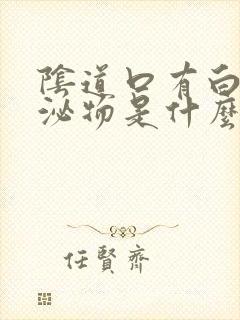 陰道口有白
泌物是什麼
任賢齊